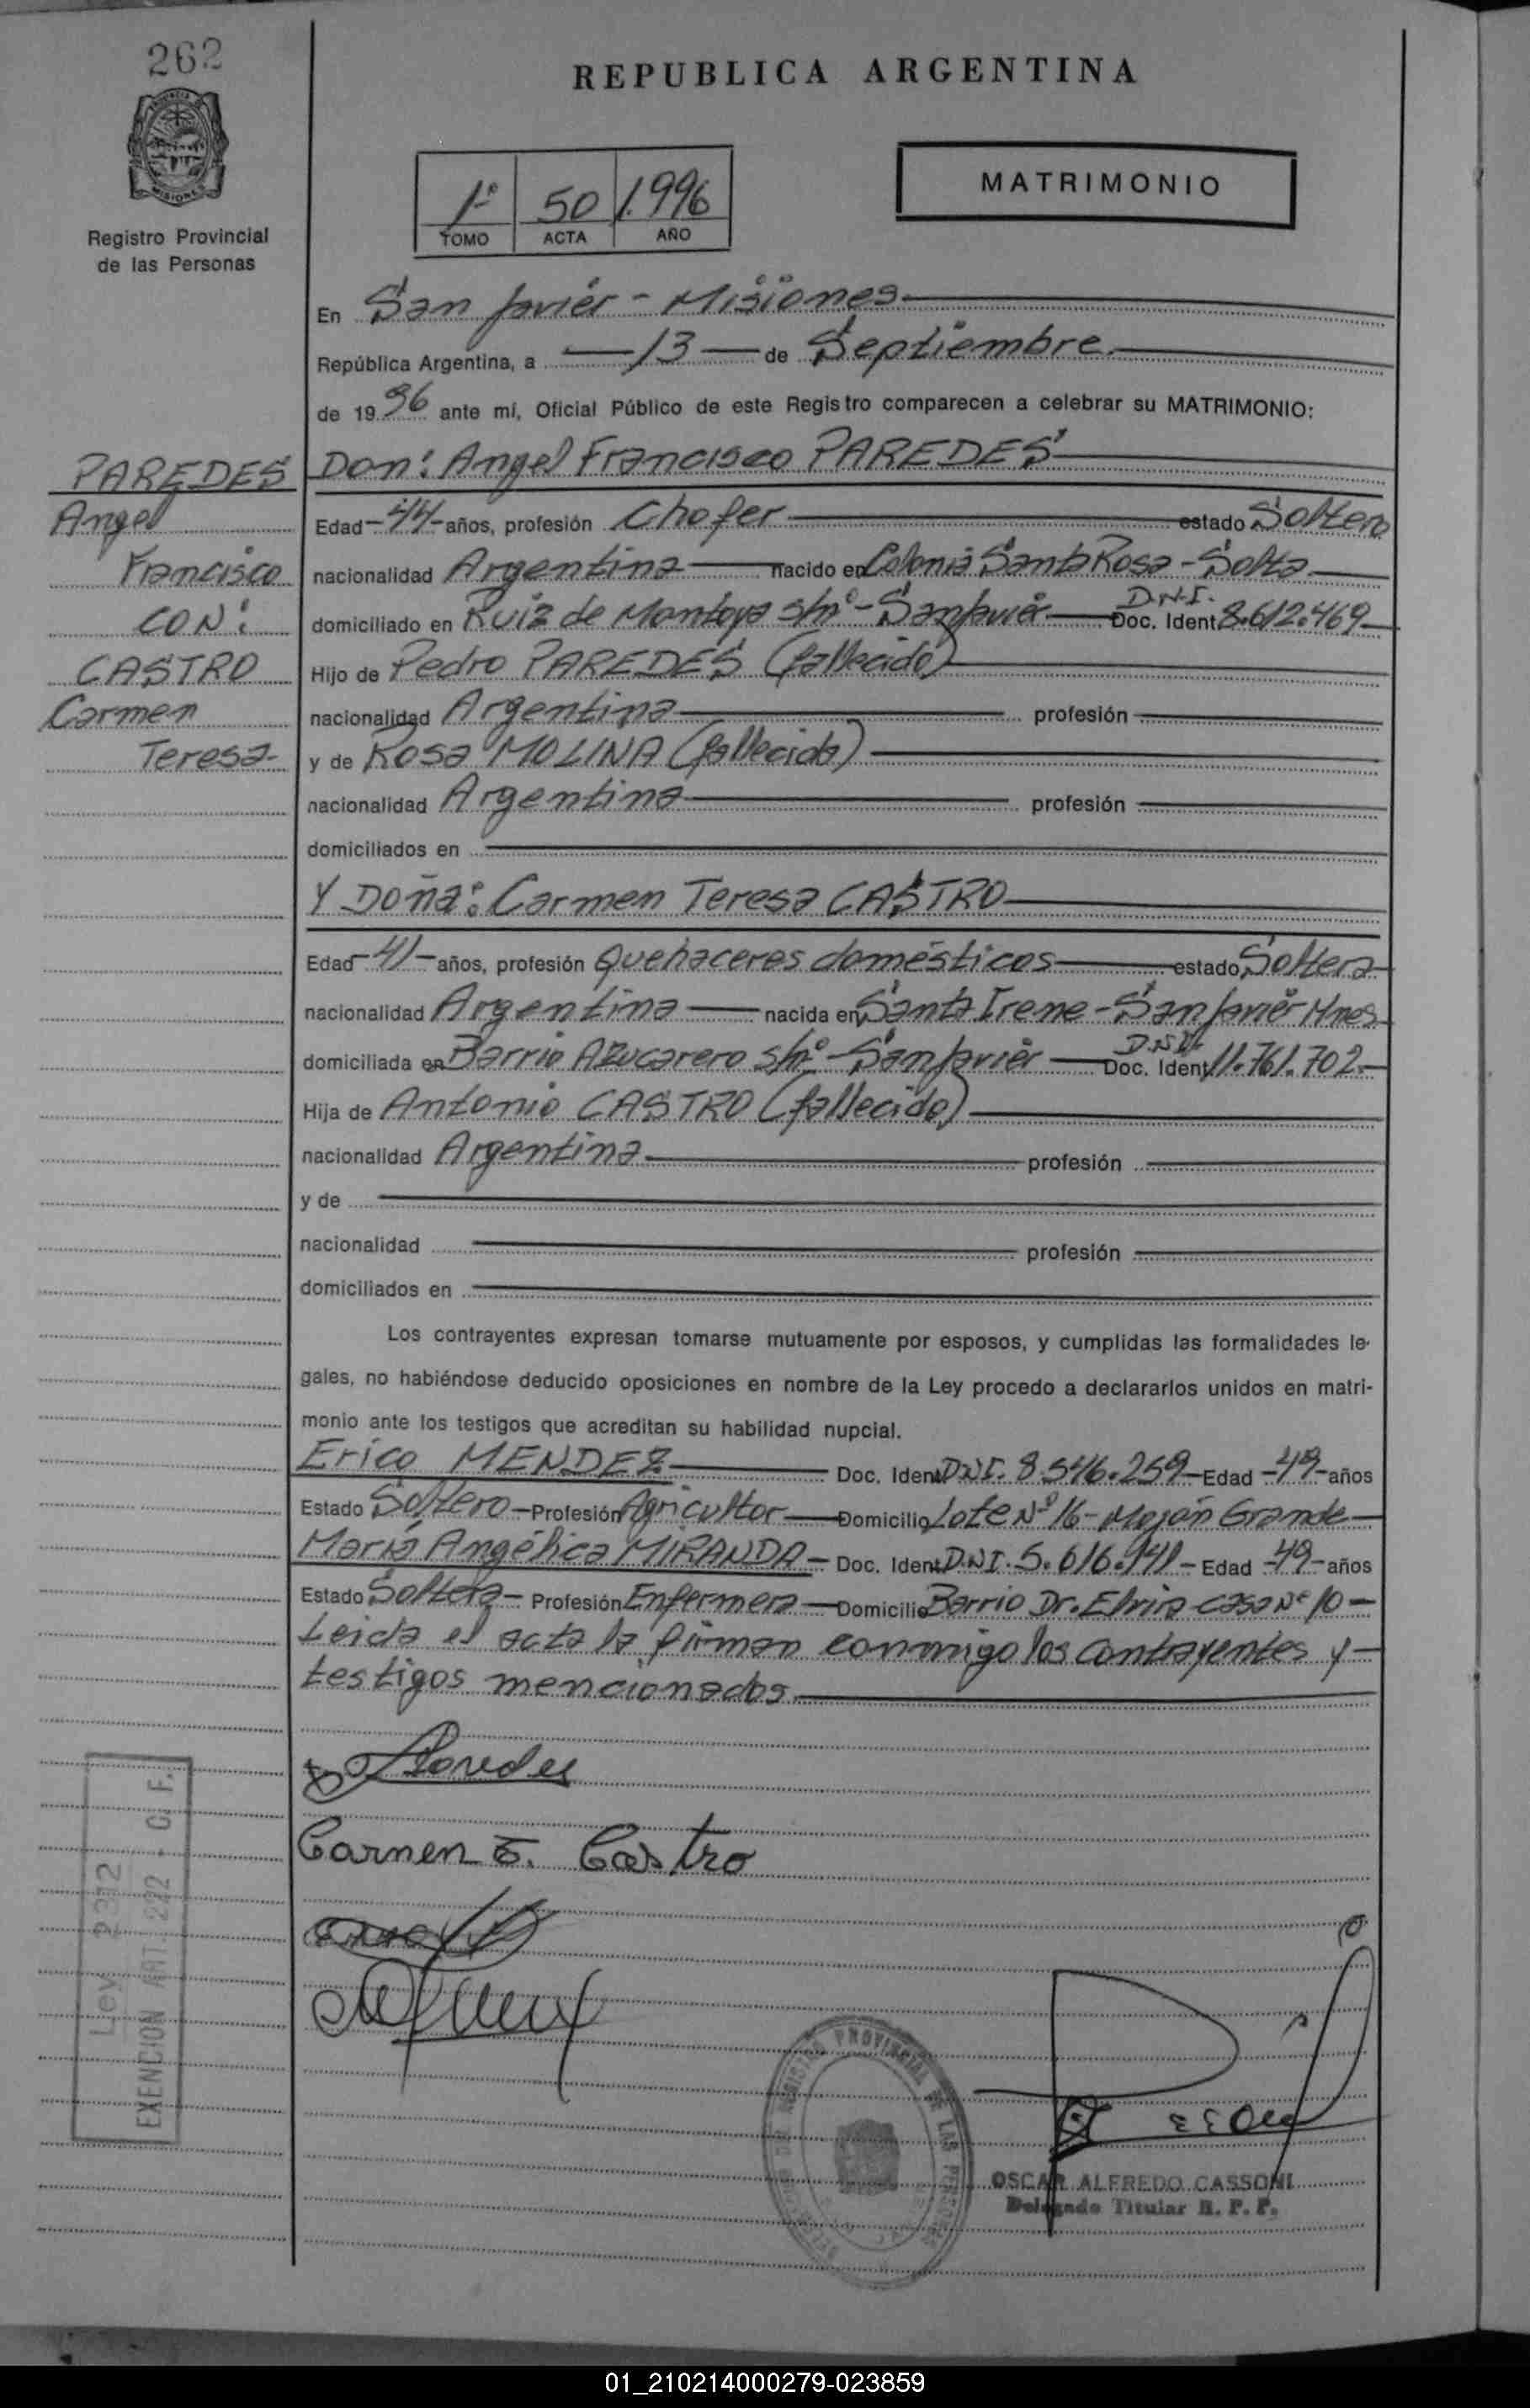 262
REPUBLICA ARGENTINA
MISIONES
Registro Provincial
de las Personas
1º 50 1.996
TOMO ACTA AÑO
MATRIMONIO
En San Javier - Misiones
República Argentina, a 13 de Septiembre
de 1996 ante mí, Oficial Público de este Registro comparecen a celebrar su MATRIMONIO:
PAREDES
Angel
Francisco
CON:
CASTRO
Carmen
Teresa
Don: Angel Francisco PAREDES
Edad 44 años, profesión Chofer estado Soltero
nacionalidad Argentina nacido en Colonia Santa Rosa - Salta
domiciliado en Ruiz de Montoya s/nº - San Javier D.N.I. Doc. Ident. 8.612.469
Hijo de Pedro PAREDES (fallecido)
nacionalidad Argentina profesión
y de Rosa MOLINA (fallecida)
nacionalidad Argentina profesión
domiciliados en
Y Doña: Carmen Teresa CASTRO
Edad 41 años, profesión Quehaceres domésticos estado Soltera
nacionalidad Argentina nacida en Santa Irene - San Javier Mnes
domiciliada en Barrio Azucarero s/nº - San Javier D.N.I. Doc. Ident. 11.761.702
Hija de Antonio CASTRO (fallecido)
nacionalidad Argentina profesión
y de
nacionalidad profesión
domiciliados en
Los contrayentes expresan tomarse mutuamente por esposos, y cumplidas las formalidades le-
gales, no habiéndose deducido oposiciones en nombre de la Ley procedo a declararlos unidos en matri-
monio ante los testigos que acreditan su habilidad nupcial.
Erico MENDEZ Doc. Ident. DNI. 8.546.259 Edad 49 años
Estado Soltero Profesión Agricultor Domicilio Lote Nº 16 - Mojón Grande
María Angélica MIRANDA Doc. Ident. D.N.I. 5.616.141 Edad 49 años
Estado Soltera Profesión Enfermera Domicilio Barrio Dr. Elvira casa Nº 10
Leida el acta la firman conmigo los contrayentes y
testigos mencionados
Paredes
Carmen T. Castro
Ley 2312
EXENCION ART. 222 - C.F.
REGISTRO PROVINCIAL DE LAS PERSONAS
OSCAR ALFREDO CASSONI
Delegado Titular R. P. P.
01_210214000279-023859